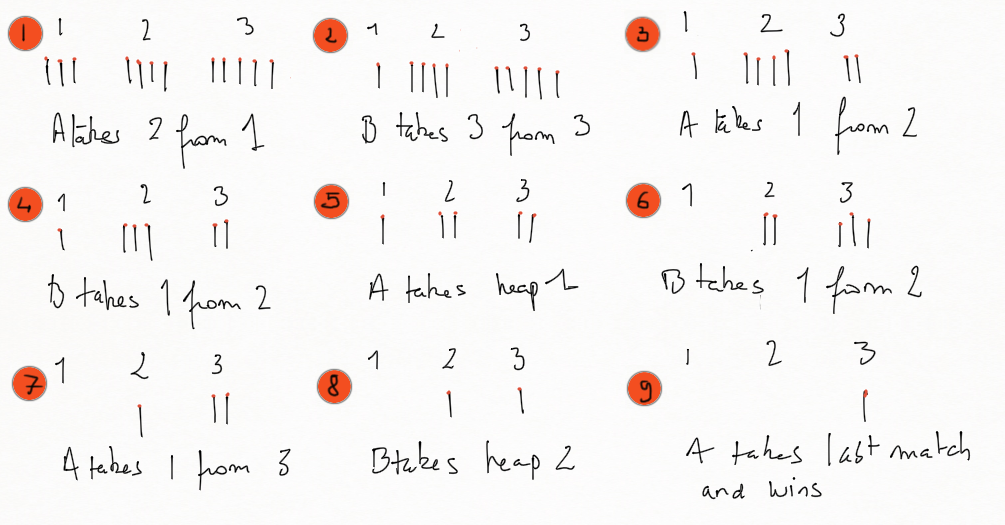 1 1 2 3
A takes 2 from 1
2 1 2 3
B takes 3 from 3
3 1 2 3
A takes 1 from 2
4 1 2 3
B takes 1 from 2
5 1 2 3
A takes heap 1
6 1 2 3
B takes 1 from 2
7 1 2 3
A takes 1 from 3
8 1 2 3
B takes heap 2
9 1 2 3
A takes last match
and wins